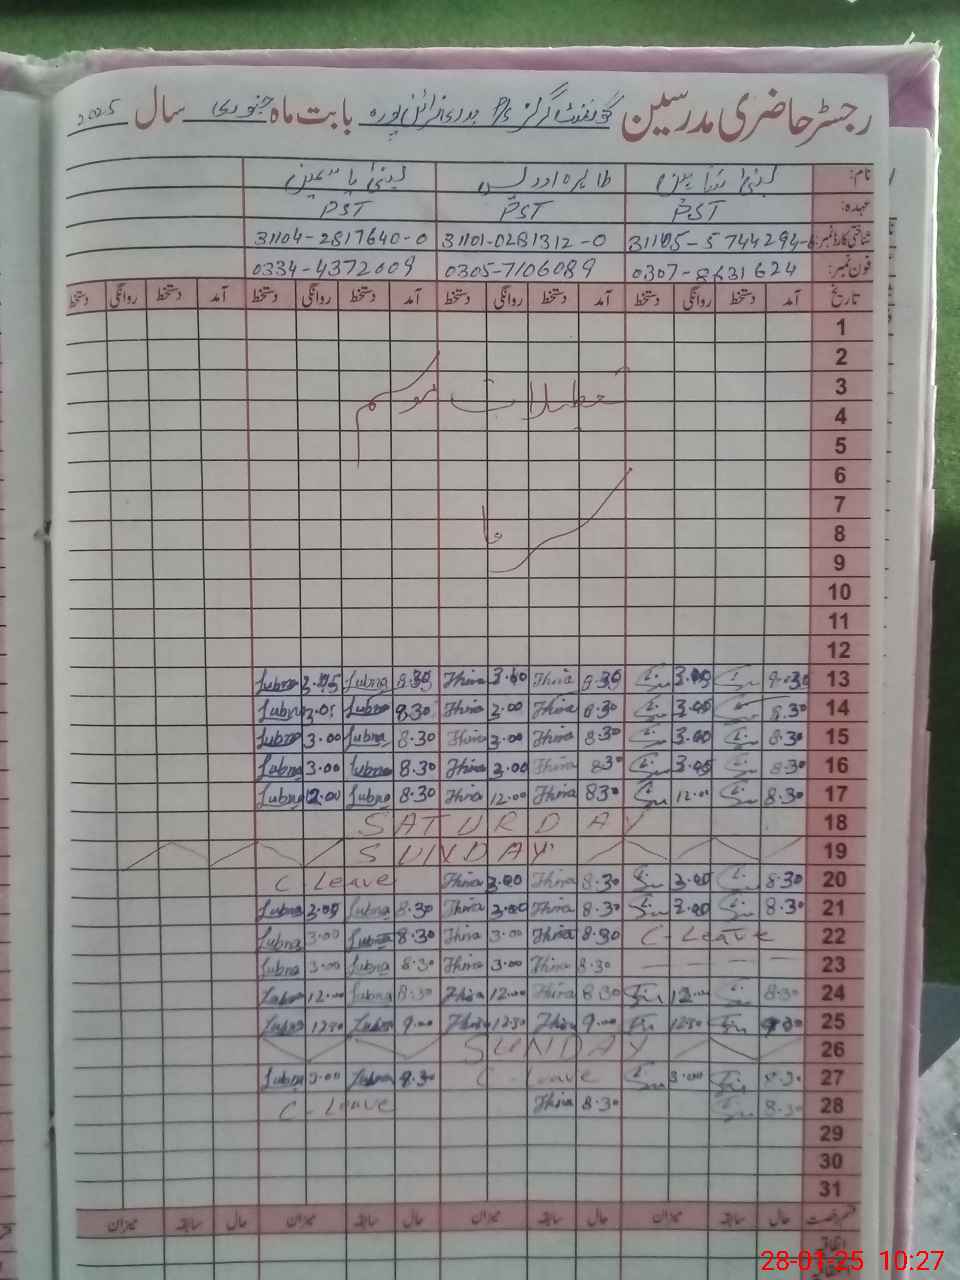 رجسٹر حاضری مدرسین گورنمنٹ گرلز P/S بابت ماہ جنوری سال 2025
نام: لبنیٰ شاہین طاہرہ لبنیٰ یاسمین
عہدہ: PST PST PST
شناختی کارڈ نمبر: 31101-0281312-0 31104-2817640-0
فون نمبر: 0307-8631624 0305-7106089 0334-4372009
تاریخ آمد دستخط روانگی دستخط آمد دستخط روانگی دستخط آمد دستخط روانگی دستخط آمد دستخط روانگی دستخط
1
2
3 تعطیلات موسم
4
5
6
7
8 ما
9
10
11
12
13 8.30 3.00 8.30 Thira 3.00 Thira 8.30 Lubna Lubna
14 8.30 3.00 8.30 Thira 3.00 Thira 8.30 Lubna 3.05 Lubna
15 8.30 3.00 8.30 Thira 3.00 Thira 8.30 Lubna 3.00 Lubna
16 8.30 3.00 830 Thira 3.00 Thira 8.30 Lubna 3.00 Lubna
17 8.30 12.00 830 Thira 12.00 Thira 8.30 Lubna 12.00 Lubna
18 SATURDAY
19 SUNDAY
20 8.30 3.00 8.30 Thira 3.00 Thira C-Leave
21 8.30 3.00 8.30 Thira 3.00 Thira 8.30 Lubna 3.00 Lubna
22 C-Leave 8.30 Thira 3.00 Thira 8.30 Lubna 3.00 Lubna
23 8.30 Thira 3.00 Thira 8.30 Lubna 3.00 Lubna
24 8.30 12.00 8.30 Thira 12.00 Thira 8.30 Lubna 12.00 Lubna
25 9.00 1230 9.00 Thira 12.30 Thira 9.00 Lubna 1230 Lubna
26 SUNDAY
27 8.30 3.00 C-Leave 8.30 Lubna 3.00 Lubna
28 8.30 8.30 Thira C-Leave
29
30
31
قسم رخصت حال سابقہ میزان حال سابقہ میزان حال سابقہ میزان حال سابقہ میزان
اتفاقیہ
28-01-25 10:27